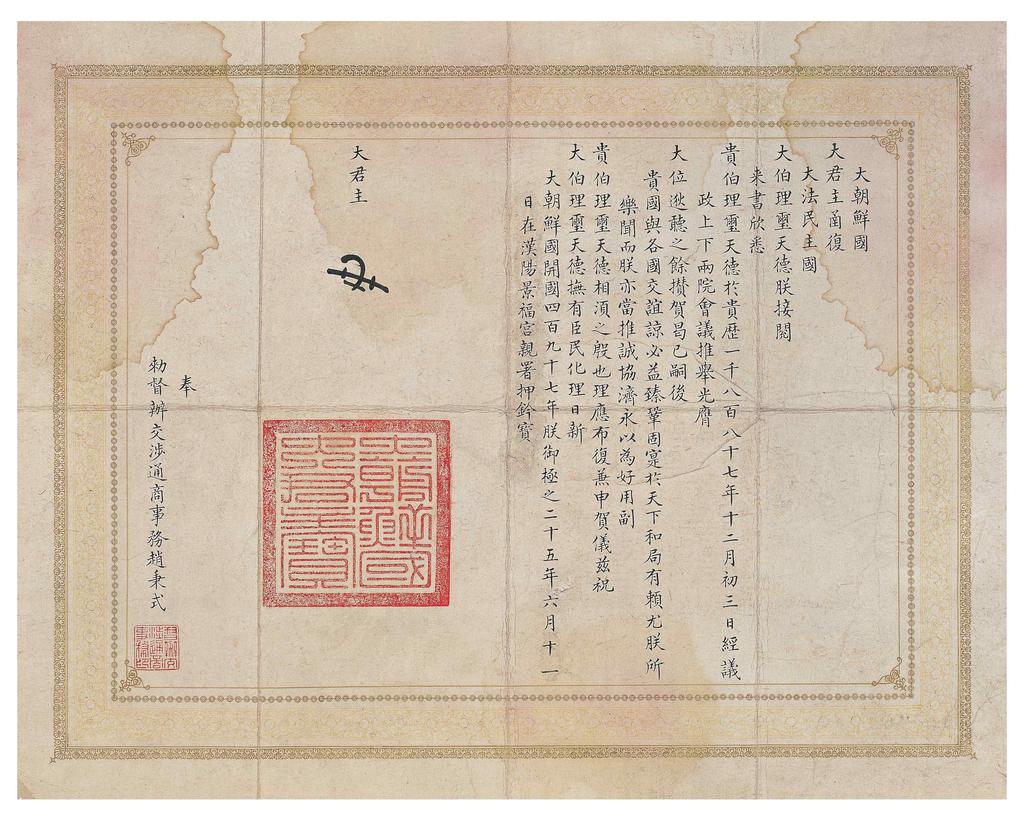 大朝鮮國
大君主函復
大法民主國
大伯理璽天德朕接閱
來書欣悉
貴伯理璽天德於貴歷一千八百八十七年十二月初三日經議
政上下兩院會議推舉光膺
大位逖聽之餘攢賀曷已嗣後
貴國與各國交誼諒必益臻鞏固寔於天下和局有賴尤朕所
樂聞而朕亦當推誠協濟永以為好用副
貴伯理璽天德相湏之殷也理應布復兼申賀儀茲祝
大伯理璽天德撫有臣民化理日新
大朝鮮國開國四百九十七年朕御極之二十五年六月十一
日在漢陽景福宮親署押鈐寶
大君主
大朝鮮國
大君主寶
奉
勅督辦交涉通商事務趙秉式